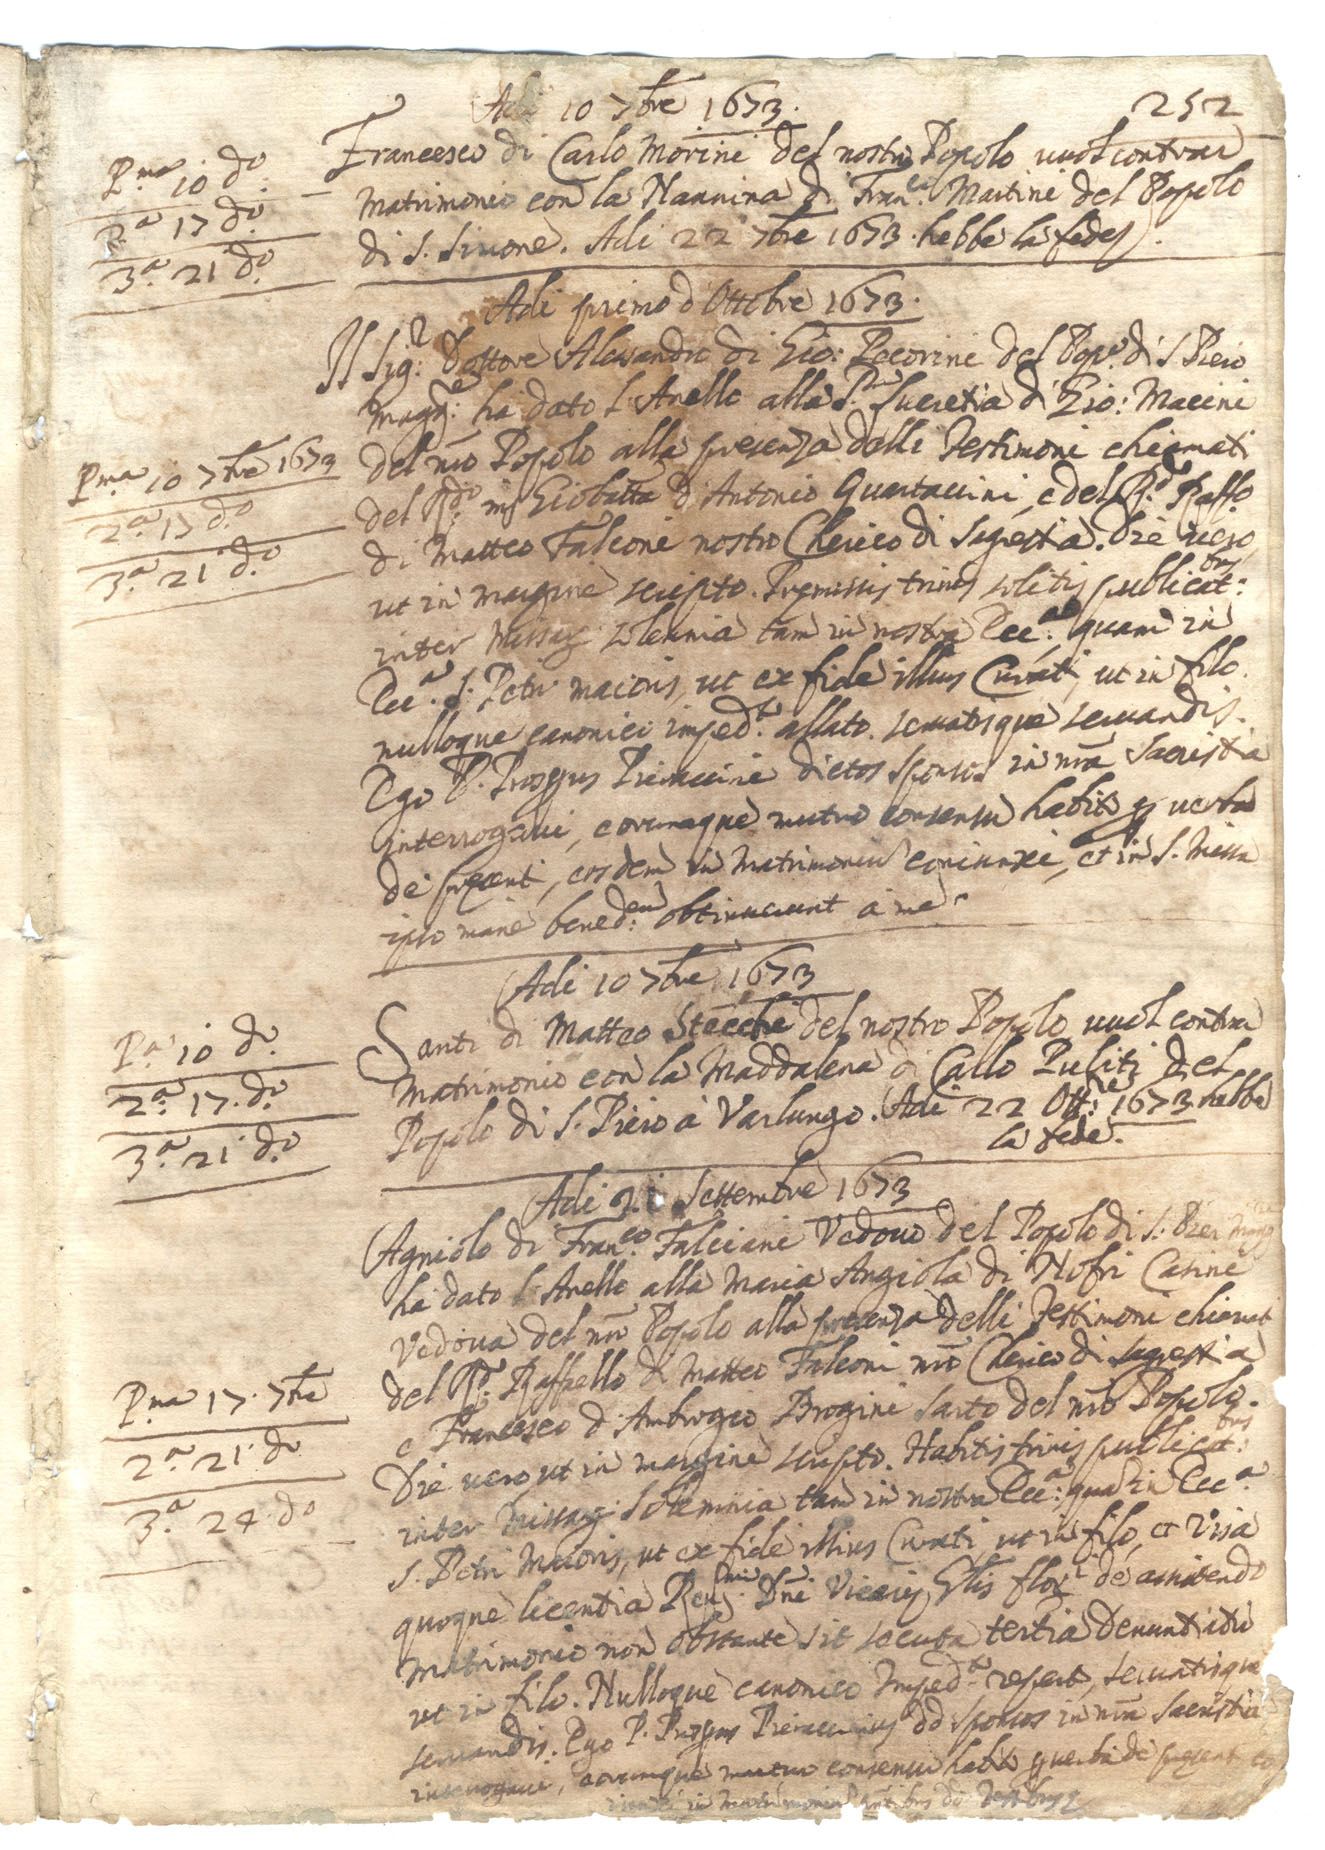 Adi 10 7bre 1673.
252
Francesco di Carlo Morini del nostro Popolo vuol contrar
Matrimonio con la Nannina di Fran.co Martini del Popolo
di S. Simone. Adi 22 7bre 1673. hebbe la fede
P.ma 10 do
2.a 17 do.
3.a 21 do.
Adi primo d'Ottobre 1673.
Il Sig.r Dottore Alessandro di Gio: Pecorini del Pop.o di S Piero
Magg.e ha dato l'Anello alla S.ra Lucretia di Gio: Macini
del nro Popolo alla presenza delli Testimoni chiamati
del R.do m Giobatta d'Antonio Quartaccini, e del R.do Raff.o
di Matteo Falconi nostro Cherico di Sagrestia. Die vero
ut in margine scripto. Premissis trinis solitis publicat:bus
inter Missar. solemnia tam in nostra Ecc.a quam in
Ecc.a S. Petri maioris, ut ex fide illius Curati, ut in filo.
nulloque canonico imped.to allato. servatisque servandis.
Ego P. Prosper Pieraccini dictos sponsos in nra Sacristia
interrogavi, eorumque mutuo consensu habito p verba
de presenti, eosdem in Matrimonium coniunxi, et in S. Missa
ipso mane bened.em obtinuerunt a me.
P.ma 10 7bre 1673
2.a 17 d.o
3.a 21 d.o
Adi 10 7bre 1673
Santi di Matteo Stecchi del nostro Popolo vuol contrar
Matrimonio con la Maddalena di Carlo Puliti del
Popolo di S. Piero à Varlungo. Adi 22 Ott.re 1673 hebbe
la fede.
P.a 10 do.
2.a 17. do.
3.a 21 do
Adi 21 Settembre 1673
Agniolo di Fran.co Falciani Vedovo del Popolo di S. Pier Mag.re
ha dato l'Anello alla Maria Angiola di Nofri Casini
Vedova del nro Popolo alla presenza delli Testimoni chiamat
del R.do Raffaello di Matteo Falconi nro Cherico di Sagrestia
e Francesco d'Ambrogio Brogini Sarto del nro Popolo.
Die vero ut in margine scripto. Habitis trinis publicat:bus
inter Missar. Solemnia tam in nostra Ecc.a quam in Ecc.a
S. Petri Maioris, ut ex fide illius Curati, ut in filo, et Visa
quoque licentia Rev.mi Dni Vicarij Glis flor.i de
Matrimonio non obstante sit secuta tertia Denuntiatio
ut in filo. Nulloque canonico Imped.to servatisque
servandis. Ego P. Prosper Pieraccinius dd sponsos in nra Sacristia
interrogavi, eorumque mutuo consensu habito p verba de present
in Matrimonium
P.ma 17. 7bre
2.a 21 do
3.a 24 do